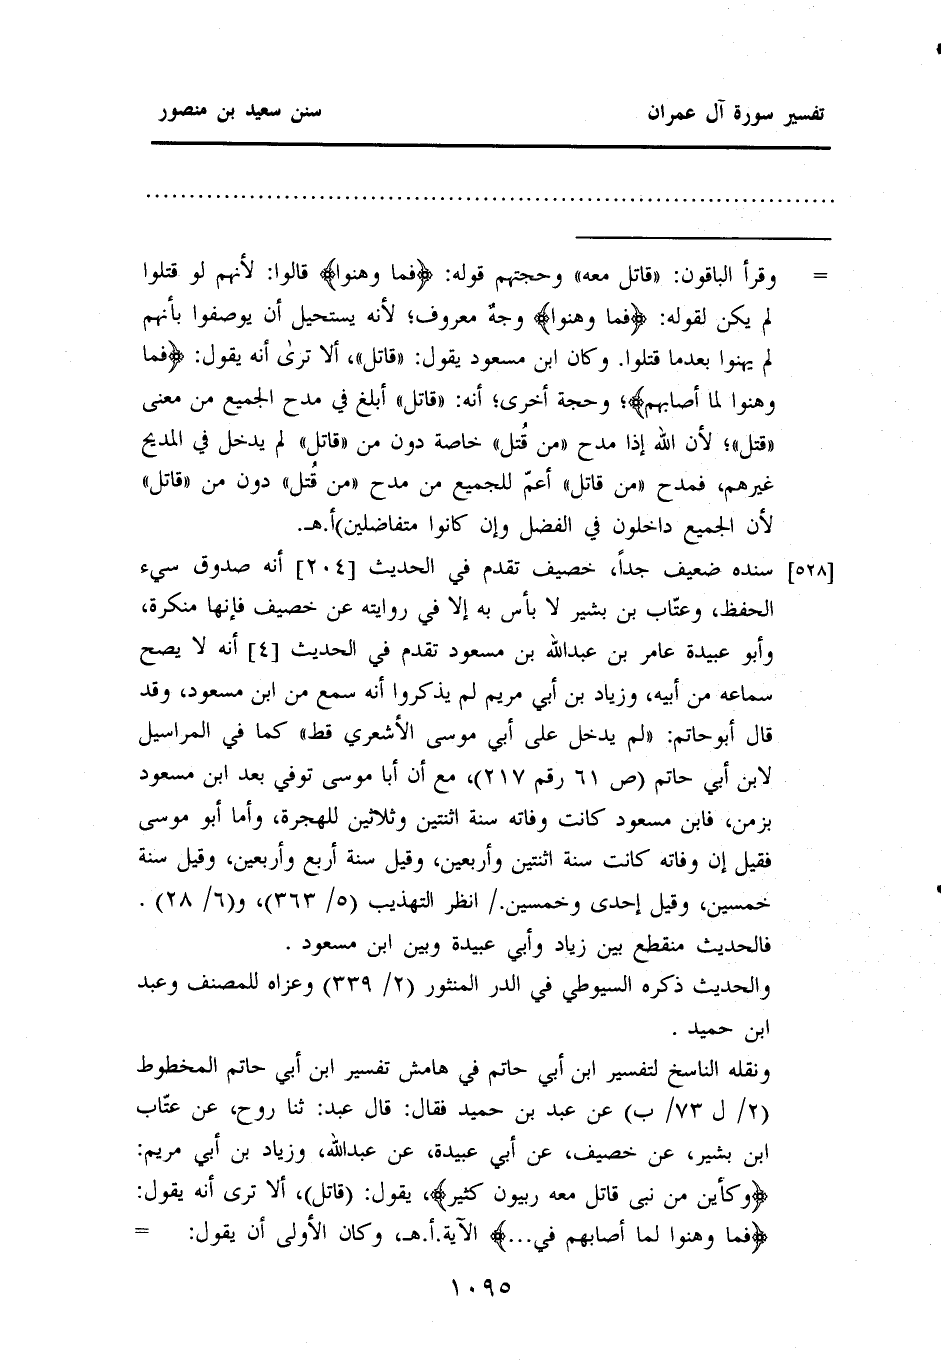 تفسير سورة آل عمران
سنن سعيد بن منصور
= وقرأ الباقون: «قاتل معه» وحجتهم قوله: ﴿فما وهنوا﴾ قالوا: لأنهم لو قتلوا
لم يكن لقوله: ﴿فما وهنوا﴾ وجهٌ معروف؛ لأنه يستحيل أن يوصفوا بأنهم
لم يهنوا بعدما قتلوا. وكان ابن مسعود يقول: «قاتل»، ألا ترىٰ أنه يقول: ﴿فما
وهنوا لما أصابهم﴾؛ وحجة أخرى؛ أنه: «قاتل» أبلغ في مدح الجميع من معنى
«قتل»؛ لأن الله إذا مدح «من قُتل» خاصة دون من «قاتل» لم يدخل في المديح
غيرهم، فمدح «من قاتل» أعمّ للجميع من مدح «من قُتل» دون من «قاتل»
لأن الجميع داخلون في الفضل وإن كانوا متفاضلين)أ.هـ.
[٥٢٨] سنده ضعيف جداً، خصيف تقدم في الحديث [٢٠٤] أنه صدوق سيء
الحفظ، وعتّاب بن بشير لا بأس به إلا في روايته عن خصيف فإنها منكرة،
وأبو عبيدة عامر بن عبدالله بن مسعود تقدم في الحديث [٤] أنه لا يصح
سماعه من أبيه، وزياد بن أبي مريم لم يذكروا أنه سمع من ابن مسعود، وقد
قال أبوحاتم: «لم يدخل على أبي موسى الأشعري قط» كما في المراسيل
لابن أبي حاتم (ص ٦١ رقم ٢١٧)، مع أن أبا موسى توفي بعد ابن مسعود
بزمن، فابن مسعود كانت وفاته سنة اثنتين وثلاثين للهجرة، وأما أبو موسى
فقيل إن وفاته كانت سنة اثنتين وأربعين، وقيل سنة أربع وأربعين، وقيل سنة
خمسين، وقيل إحدى وخمسين./ انظر التهذيب (٥/ ٣٦٣)، و(٦/ ٢٨) .
فالحديث منقطع بين زياد وأبي عبيدة وبين ابن مسعود .
والحديث ذكره السيوطي في الدر المنثور (٢/ ٣٣٩) وعزاه للمصنف وعبد
ابن حميد .
ونقله الناسخ لتفسير ابن أبي حاتم في هامش تفسير ابن أبي حاتم المخطوط
(٢/ ل ٧٣/ ب) عن عبد بن حميد فقال: قال عبد: ثنا روح، عن عتّاب
ابن بشير، عن خصيف، عن أبي عبيدة، عن عبدالله، وزياد بن أبي مريم:
﴿وكأين من نبى قاتل معه ربيون كثير﴾، يقول: (قاتل)، ألا ترى أنه يقول:
﴿فما وهنوا لما أصابهم في...﴾ الآية.أ.هـ، وكان الأولى أن يقول: =
١٠٩٥